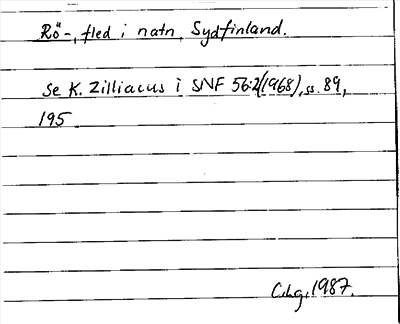 Rö-, fled i natn, Sydfinland.
Se K. Zilliacus i SNF 56:2(1968), ss. 89,
195
C.hg. 1987.